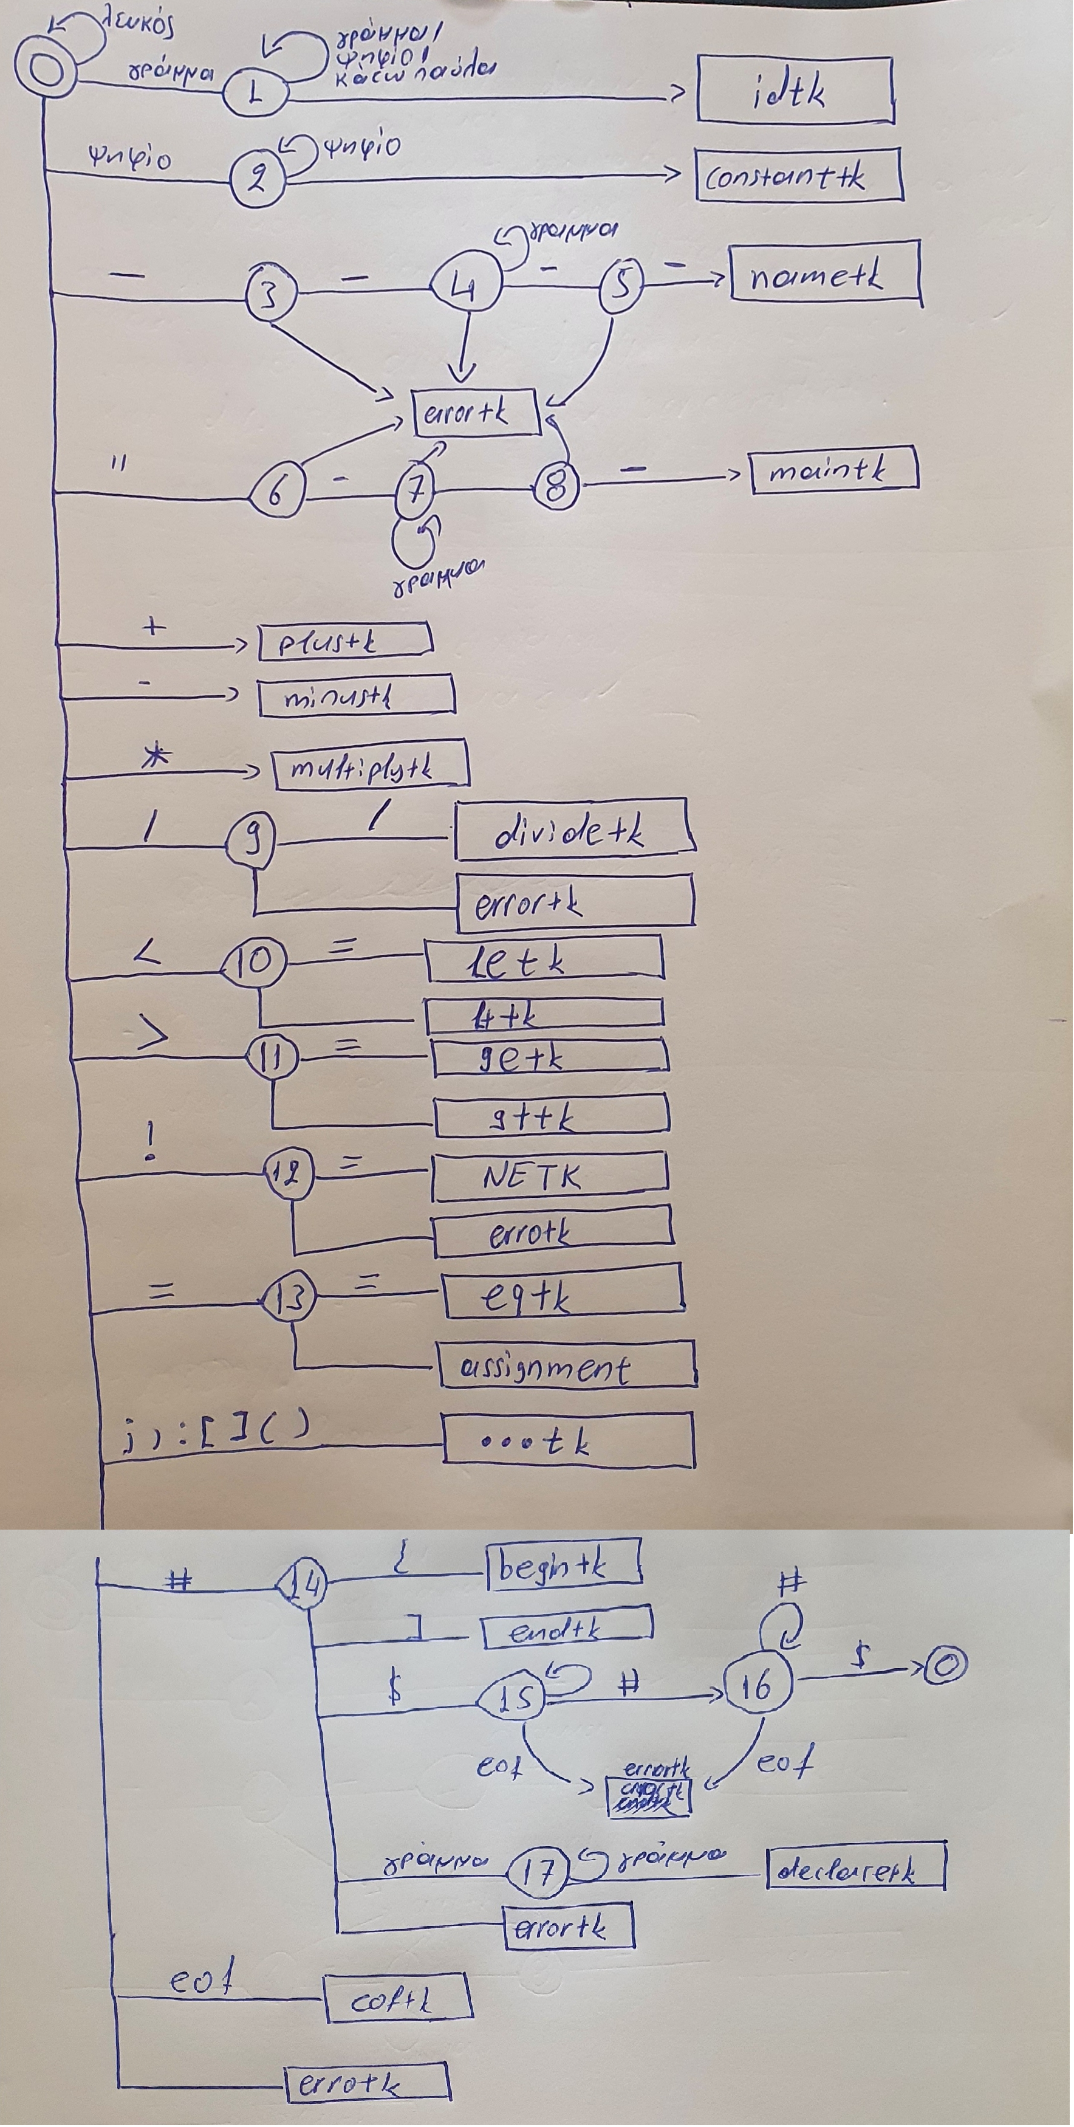 λευκός
γράμμα 1 γράμμα/
ψηφίο/
κάτω παύλα
idtk
ψηφίο 2 ψηφίο constanttk
_ 3 _ 4 γράμμα _ 5 _ nametk
errortk
" 6 - 7 8 _ maintk
γράμμα
+ plustk
- minustk
* multiplytk
/ 9 / dividetk
errortk
< 10 = letk
lttk
> 11 = getk
gttk
! 12 = NETK
errotk
= 13 = eqtk
assignment
; ) : [ ] ( ) ...tk
# 14 { begintk
] endtk
$ 15 # 16 # $
eof errortk eof
γράμμα 17 γράμμα declaretk
errortk
eof eoftk
errotk